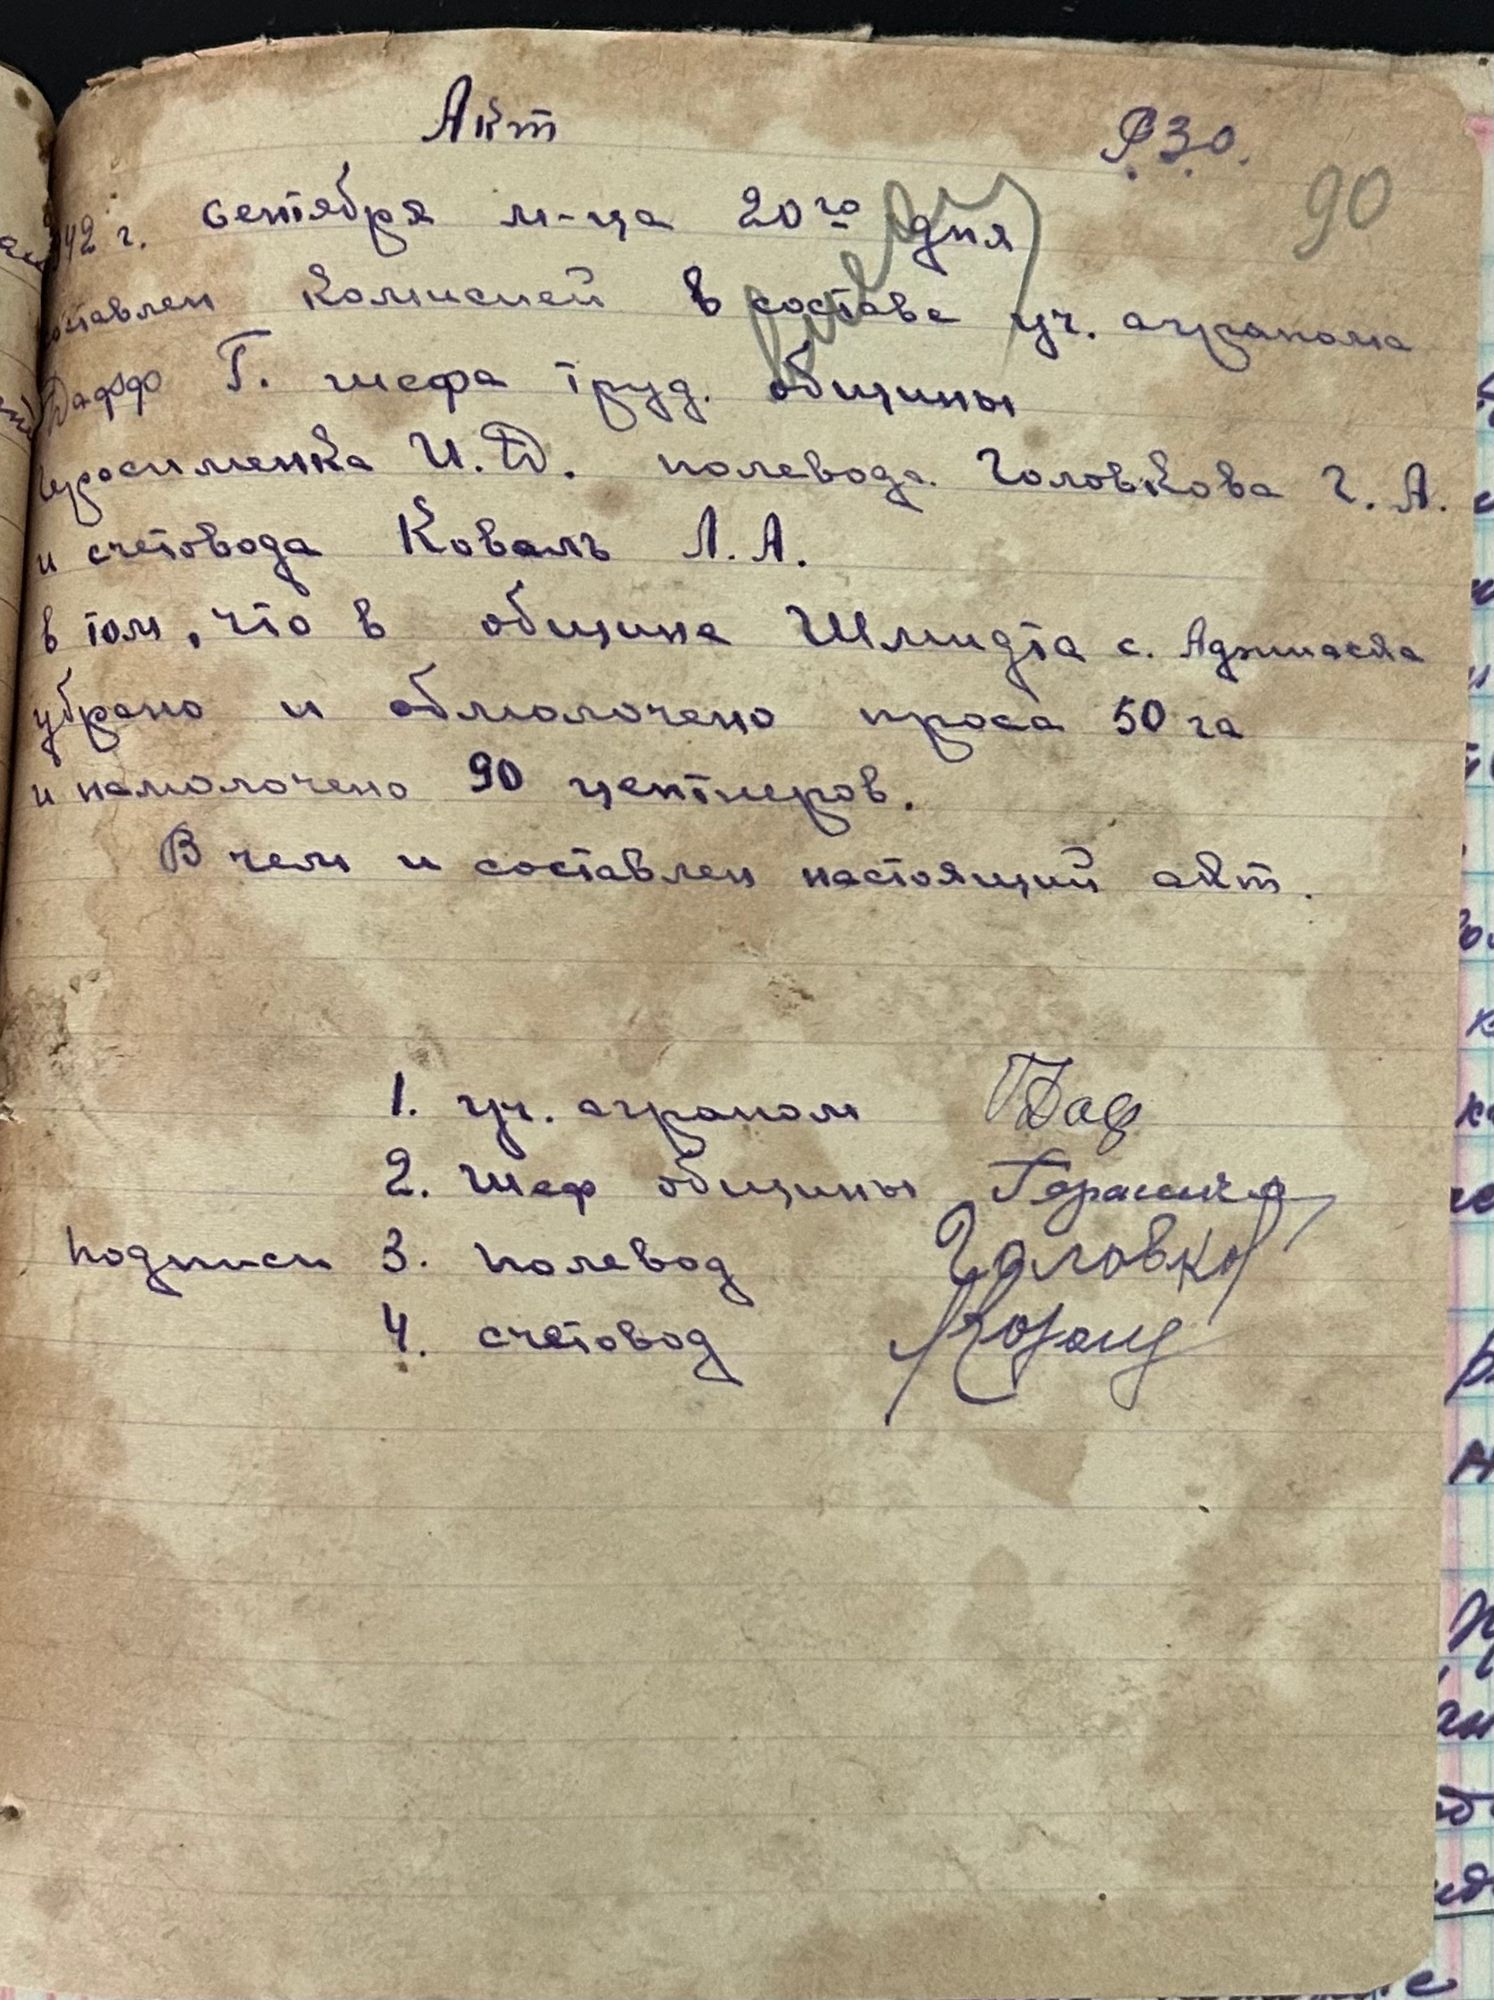 Акт
Р.З.О.
90
942 г. сентября м-ца 20го дня
составлен комисией в составе уч. агранома
Даффо Г. шефа труд. общины
Герасименка И.Д. полевода Головкова Г.А.
и счетовода Коваль Л.А.
в том, что в общине Шмидта с. Аджиаска
убрано и обмолочено проса 50 га
и намолочено 90 центнеров.
В чем и составлен настоящий акт.
1. уч. аграном Даф
2. шеф общины
Подписи 3. полевод Головков
4. счетовод